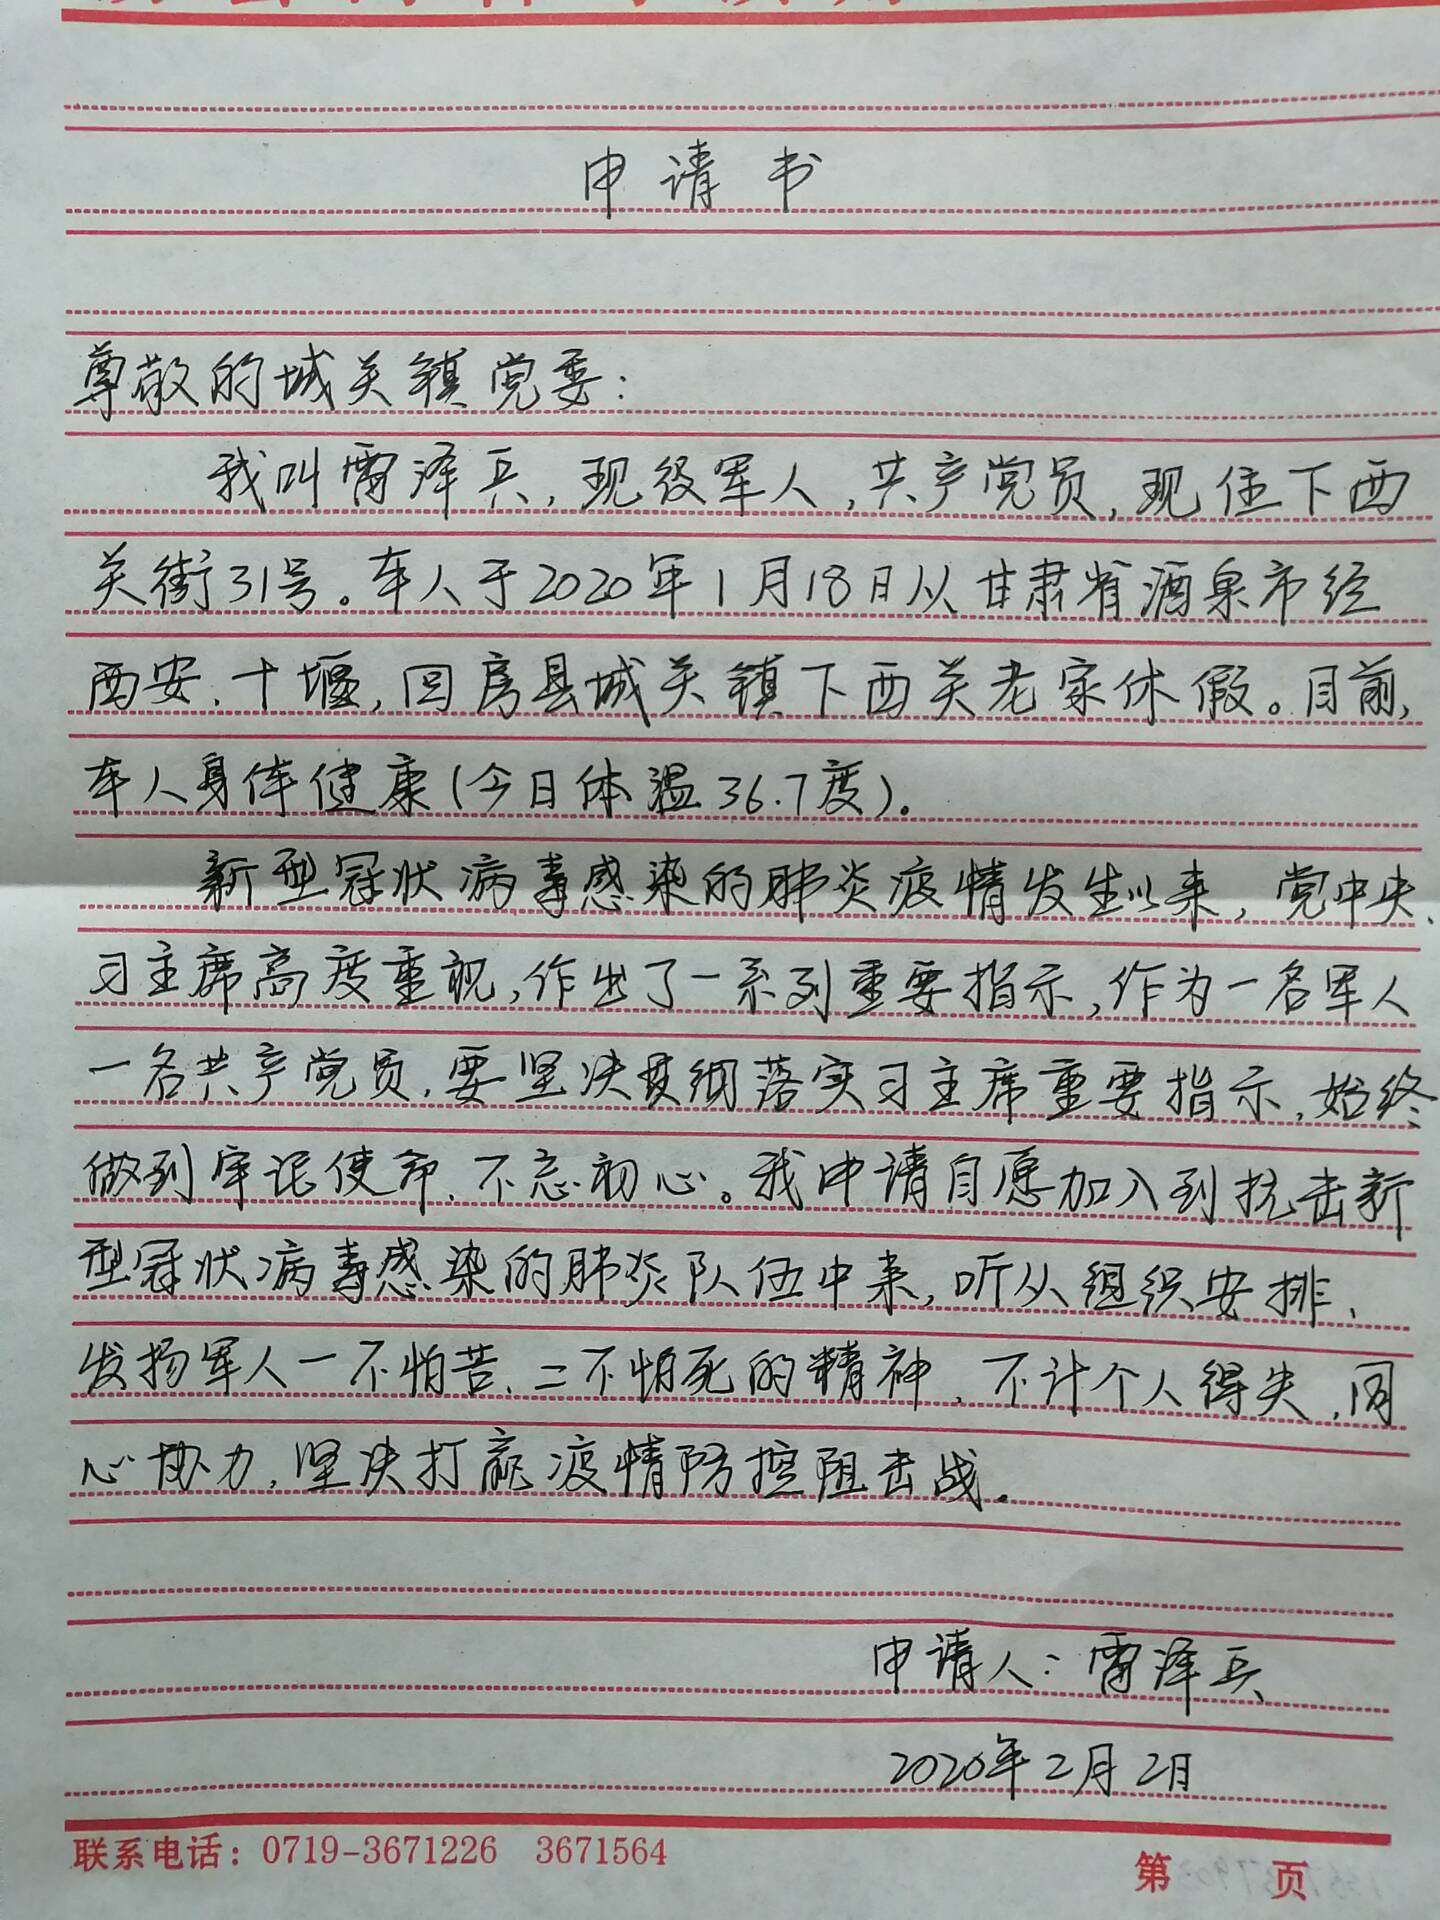 申请书
尊敬的城关镇党委：
我叫雷泽兵，现役军人，共产党员，现住下西
关街31号。本人于2020年1月18日从甘肃省酒泉市经
西安、十堰，回房县城关镇下西关老家休假。目前，
本人身体健康（今日体温36.7度）。
新型冠状病毒感染的肺炎疫情发生以来，党中央、
习主席高度重视，作出了一系列重要指示，作为一名军人
一名共产党员，要坚决贯彻落实习主席重要指示，始终
做到牢记使命、不忘初心。我申请自愿加入到抗击新
型冠状病毒感染的肺炎队伍中来，听从组织安排、
发扬军人一不怕苦、二不怕死的精神，不计个人得失，同
心协力，坚决打赢疫情防控阻击战。
申请人：雷泽兵
2020年2月2日
联系电话：0719-3671226 3671564
第 页